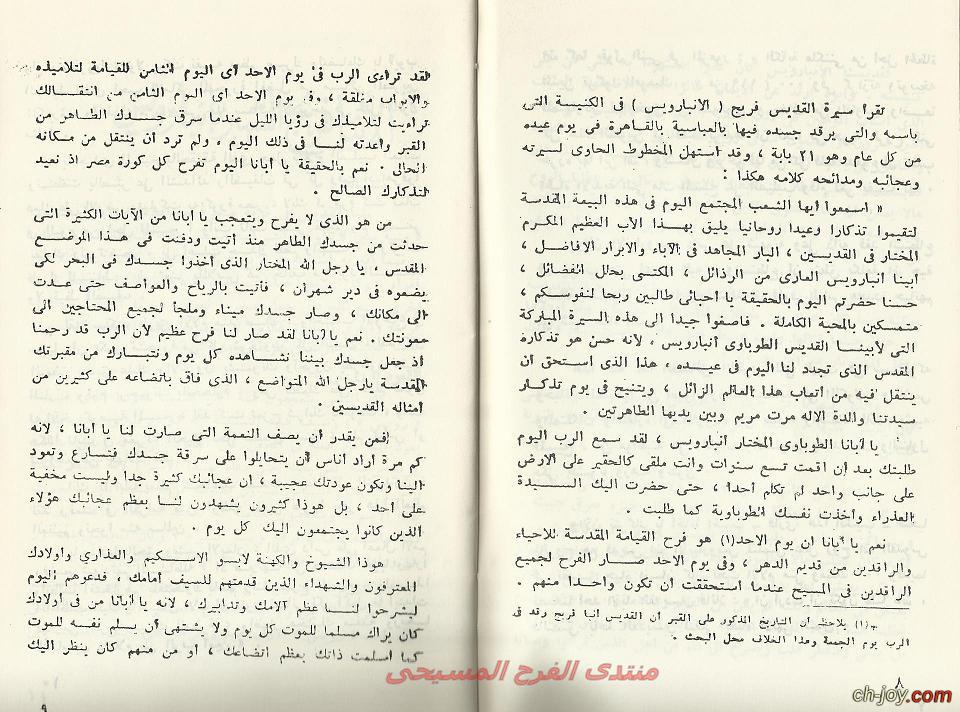 تقرأ سيرة القديس فريج ( الانبارويس ) فى الكنيسة التى
باسمه والتى يرقد جسده فيها بالعباسية بالقاهرة فى يوم عيده
من كل عام وهو ٢١ بابة ، وقد استهل المخطوط الحاوى لسيرته
وعجائبه ومدائحه كلامه هكذا :
« اسمعوا ايها الشعب المجتمع اليوم فى هذه البيعة المقدسة
لتقيموا تذكارا وعيدا روحانيا يليق بهذا الاب العظيم المكرم
المختار فى القديسين ، البار المجاهد فى الآباء والابرار الافاضل ،
أبينا أنبارويس العارى من الرذائل ، المكتسى بحلل الفضائل ،
حسنا حضرتم اليوم بالحقيقة يا أحبائى طالبين ربحا لنفوسكم ،
متمسكين بالمحبة الكاملة . فاصغوا جيدا الى هذه السيرة المباركة
التى لأبينا القديس الطوباوى أنبارويس ، لانه حسن هو تذكاره
المقدس الذى تجدد لنا اليوم فى عيده ، هذا الذى استحق ان
ينتقل فيه من أتعاب هذا العالم الزائل ، ويتنيح فى يوم تذكار
سيدتنا والدة الاله مرت مريم وبين يديها الطاهرتين .
يا أبانا الطوباوى المختار أنبارويس ، لقد سمع الرب اليوم
طلبتك بعد أن اقمت تسع سنوات وانت ملقى كالحقير على الارض
على جانب واحد لم تكلم أحدا ، حتى حضرت اليك السيدة
العذراء وأخذت نفسك الطوباوية كما طلبت .
نعم يا أبانا ان يوم الاحد(١) هو فرح القيامة المقدسة للاحياء
والراقدين من قديم الدهر ، وفى يوم الاحد صار الفرح لجميع
الراقدين فى المسيح عندما استحققت أن تكون واحدا منهم .
(١) يلاحظ أن التاريخ المذكور على القبر أن القديس أنبا فريج رقد فى
الرب يوم الجمعة وهذا الخلاف محل البحث .
٨
لقد تراءى الرب فى يوم الاحد أى اليوم الثامن للقيامة لتلاميذه
والابواب مغلقة ، وفى يوم الاحد أى اليوم الثامن من انتقالك
تراءيت لتلاميذك فى رؤيا الليل عندما سرق جسدك الطاهر من
القبر وأعدته لنا فى ذلك اليوم ، ولم ترد أن ينتقل من مكانه
الحالى . نعم بالحقيقة يا أبانا اليوم تفرح كل كورة مصر اذ نعيد
لتذكارك الصالح .
من هو الذى لا يفرح ويتعجب يا أبانا من الآيات الكثيرة التى
حدثت من جسدك الطاهر منذ أتيت ودفنت فى هذا الموضع
المقدس ، يا رجل الله المختار الذى أخذوا جسدك فى البحر لكى
يضموه فى دير شهران ، فأتيت بالرياح والعواصف حتى عدت
الى مكانك ، وصار جسدك ميناء وملجأ لجميع المحتاجين الى
معونتك . نعم يا أبانا لقد صار لنا فرح عظيم لأن الرب قد رحمنا
اذ جعل جسدك بيننا نشاهده كل يوم ونتبارك من مقبرتك
المقدسة يارجل الله المتواضع ، الذى فاق باتضاعه على كثيرين من
أمثاله القديسين .
فمن يقدر أن يصف النعمة التى صارت لنا يا أبانا ، لانه
كم مرة اراد أناس أن يتحايلوا على سرقة جسدك فتسارع وتعود
الينا وتكون عودتك عجيبة ، ان عجائبك كثيرة جدا وليست مخفية
على أحد ، بل هوذا كثيرون يشهدون لنا بعظم عجائبك هؤلاء
الذين كانوا يجتمعون اليك كل يوم .
هوذا الشيوخ والكهنة لابسو الاسكيم والعذارى وأولادك
المعترفون والشهداء الذين قدمتهم للسيف أمامك ، فدعوهم اليوم
ليشرحوا لنا عظم آلامك وتدابيرك ، لانه يا أبانا من فى اولادك
كان يراك مسلما للموت كل يوم ولا يشتهى أن يسلم نفسه للموت
كما أسلمت ذاتك بعظم اتضاعك ، أو من منهم كان ينظر اليك
٩
منتدى الفرح المسيحى
ch-joy.com